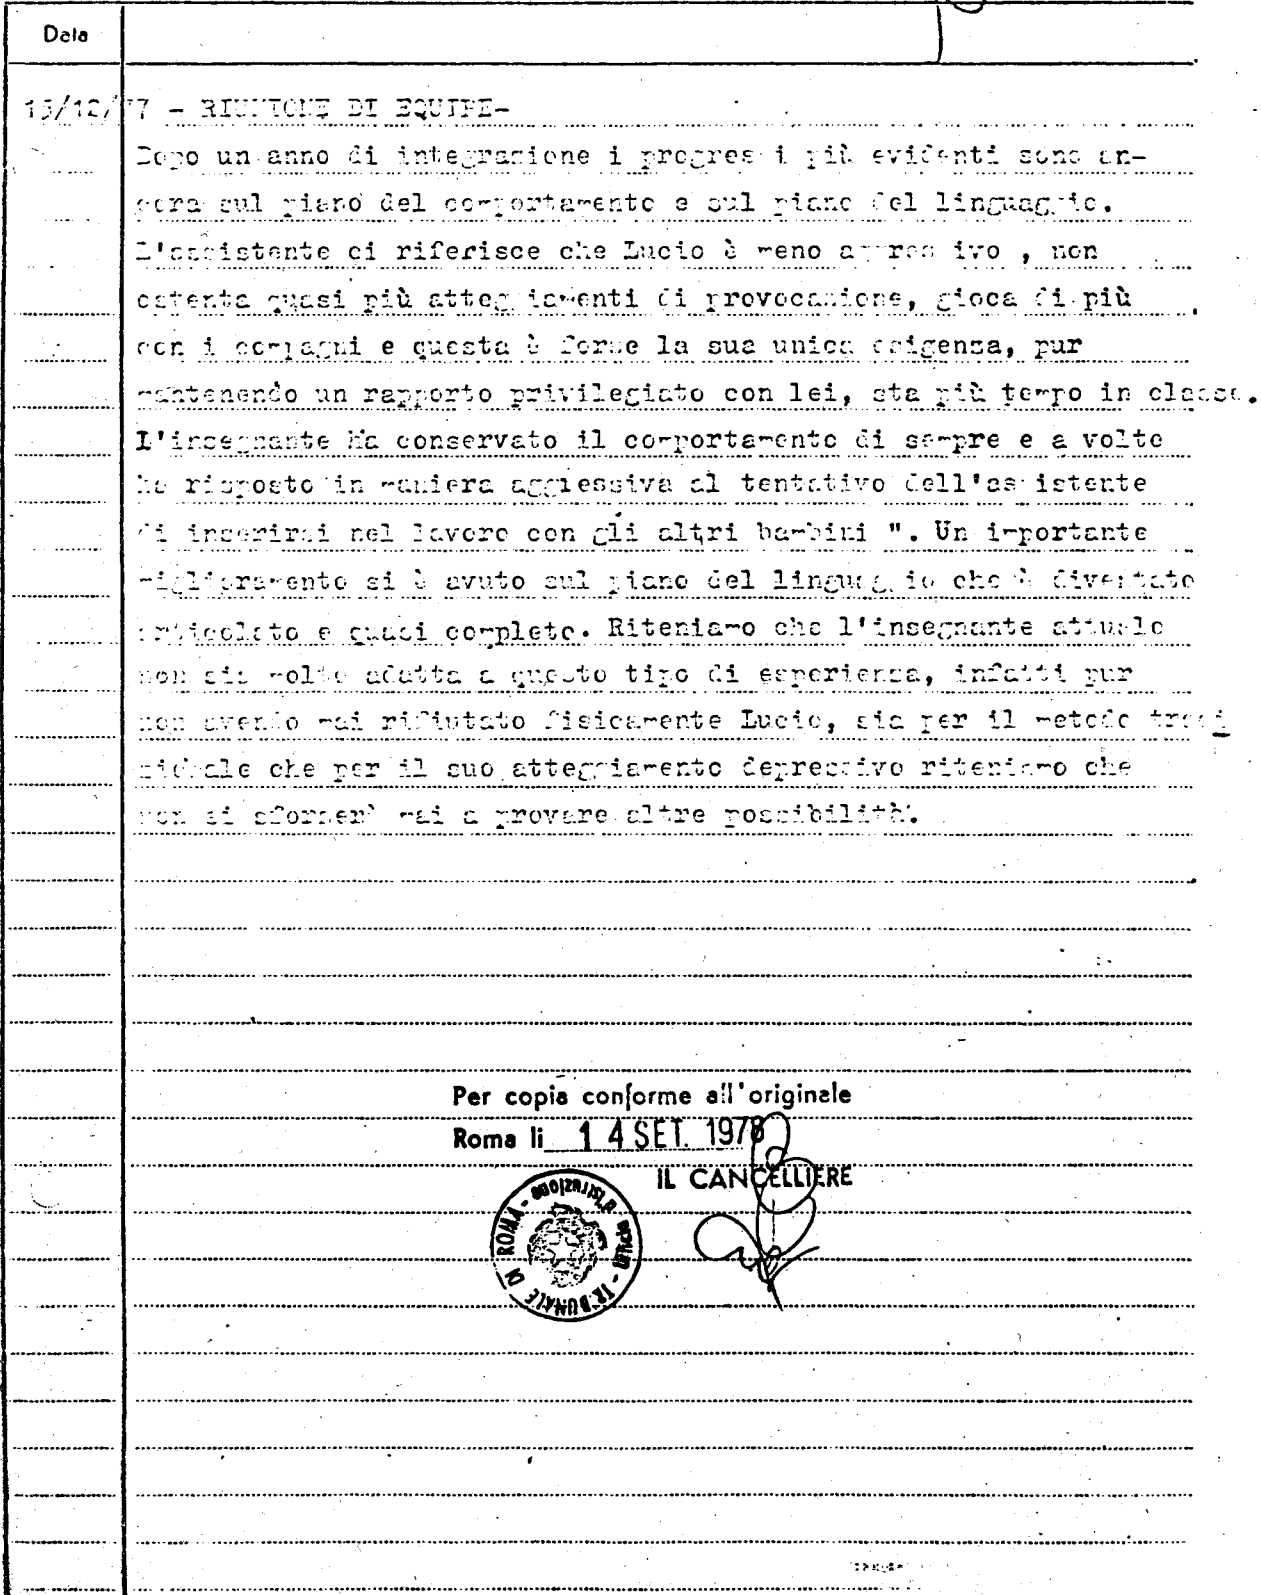 Data
15/12/77 - RIUNIONE DI EQUIPE-
Dopo un anno di integrazione i progressi più evidenti sono an-
cora sul piano del comportamento e sul piano del linguaggio.
L'assistente ci riferisce che Lucio è meno aggressivo , non
ostenta quasi più atteggiamenti di provocazione, gioca di più
con i compagni e questa è forse la sua unica esigenza, pur
mantenendo un rapporto privilegiato con lei, sta più tempo in classe.
L'insegnante ha conservato il comportamento di sempre e a volte
ha risposto in maniera aggressiva al tentativo dell'assistente
di inserirsi nel lavoro con gli altri bambini ". Un importante
miglioramento si è avuto sul piano del linguaggio che è diventato
articolato e quasi completo. Riteniamo che l'insegnante attuale
non sia molto adatta a questo tipo di esperienza, infatti pur
non avendo mai rifiutato fisicamente Lucio, sia per il metodo tradi
zionale che per il suo atteggiamento depressivo riteniamo che
non si sforzerà mai a provare altre possibilità.
Per copia conforme all'originale
Roma li 14 SET. 1978
IL CANCELLIERE
TRIBUNALE DI ROMA